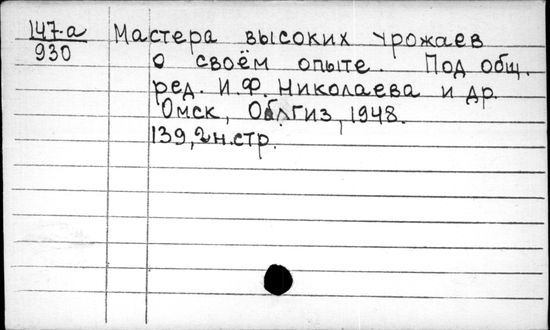 147-а Мастера высоких урожаев
930
о своём опыте. Под общ.
ред. И.Ф. Николаева и др.
Омск, Облгиз, 1948.
139,2н.стр.